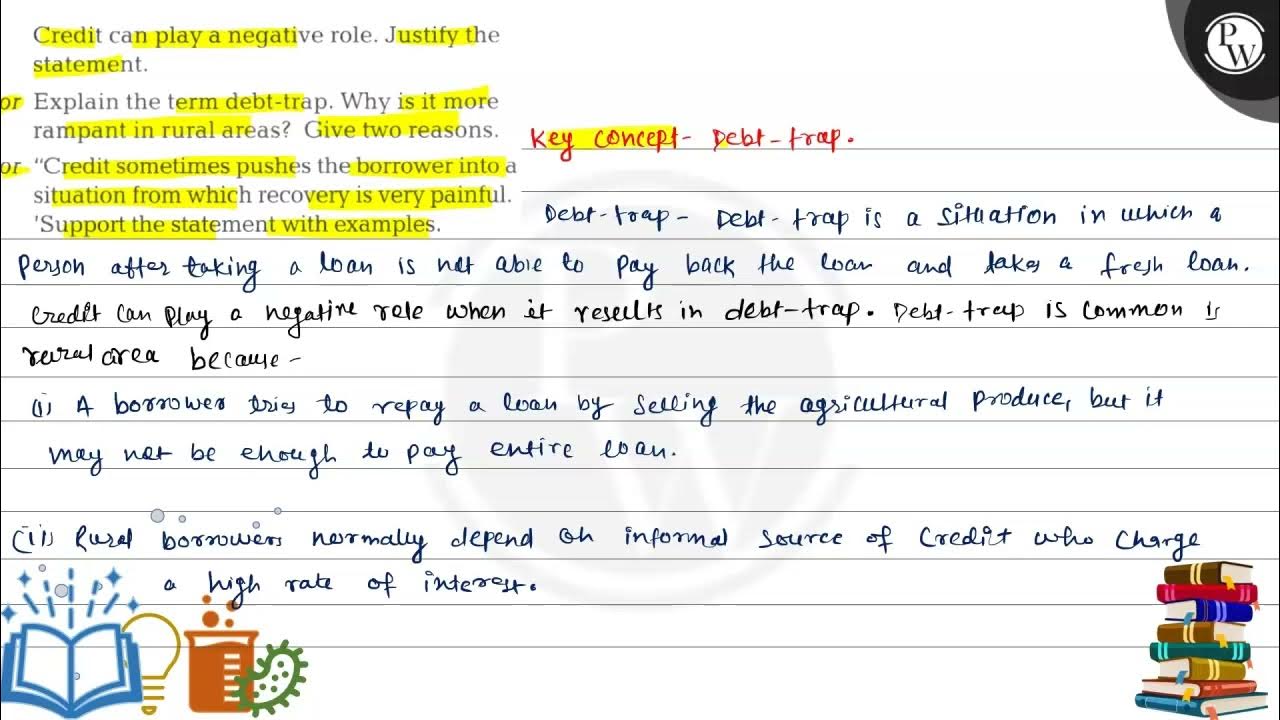 Credit can play a negative role. Justify the
statement.
or Explain the term debt-trap. Why is it more
rampant in rural areas? Give two reasons.
or “Credit sometimes pushes the borrower into a
situation from which recovery is very painful.
'Support the statement with examples.
PW
Key concept- Debt-trap.
Debt-trap - Debt-trap is a situation in which a
person after taking a loan is not able to pay back the loan and takes a fresh loan.
Credit can play a negative role when it results in debt-trap. Debt-trap is common is
rural area because -
(i) A borrower tries to repay a loan by selling the agricultural produce, but it
may not be enough to pay entire loan.
(ii) Rural borrowers normally depend on informal source of credit who charge
a high rate of interest.